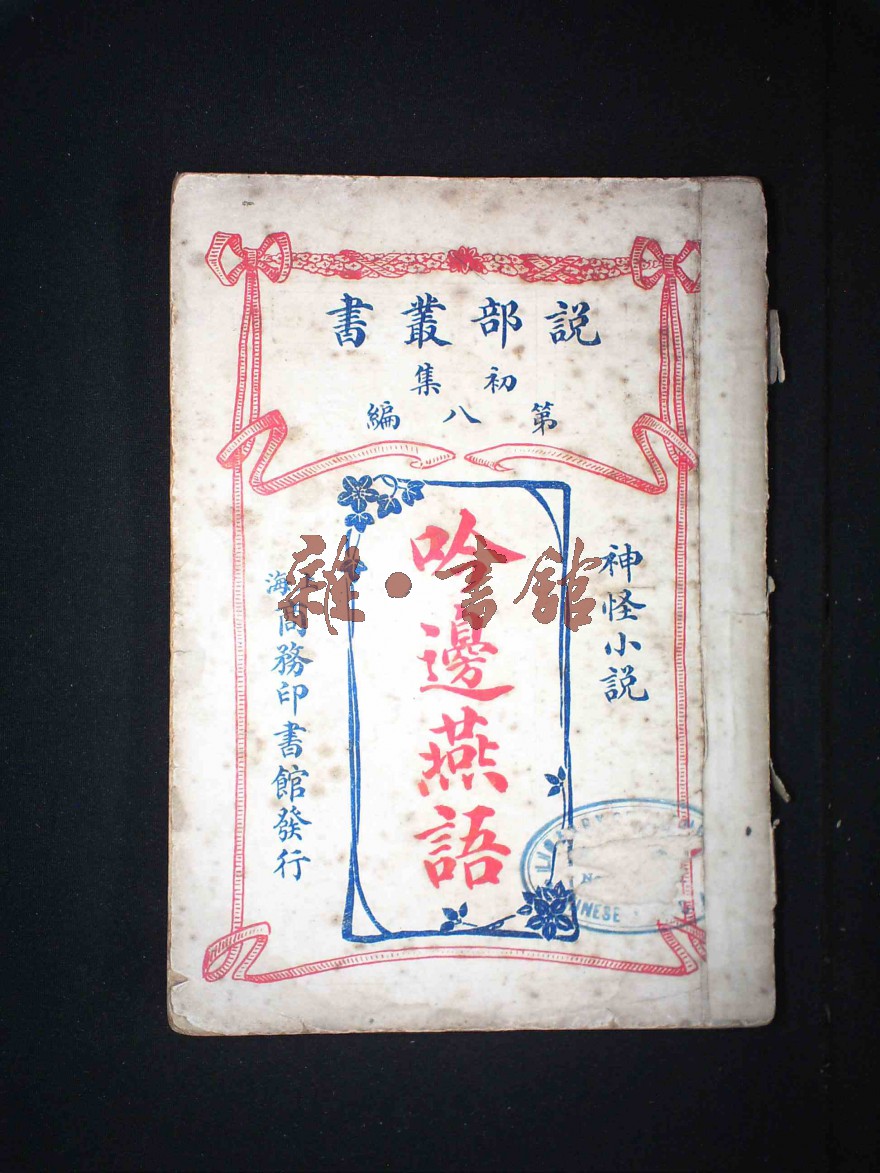 説部叢書
初集
第八編
神怪小説
吟邊燕語
上海商務印書館發行
雜·書館
LIBRARY
CHINESE